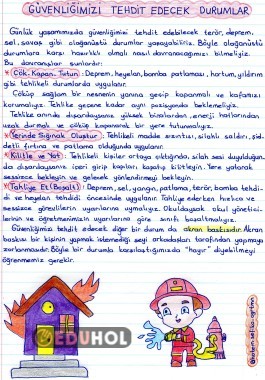 GÜVENLİĞİMİZİ TEHDİT EDECEK DURUMLAR
Günlük yaşamımızda güvenliğimizi tehdit edebilecek terör, deprem,
sel, savaş gibi olağanüstü durumlar yaşayabiliriz. Böyle olağanüstü
durumlara karşı hazırlıklı olmalı nasıl davranacağımızı bilmeliyiz.
Bu davranışlar şunlardır:
* Çök. Kapan. Tutun: Deprem, heyelan, bomba patlaması, hortum, yıldırım
gibi tehlikeli durumlarda uygulanır.
Çöküp sağlam bir nesnenin yanına geçip kapanmalı ve kafamızı
korumalıyız. Tehlike geçene kadar aynı pozisyonda beklemeliyiz.
Tehlike anında dışarıdaysak yüksek binalardan, enerji hatlarından
uzak durmalı ve çöküp kapanarak bir yere tutunmalıyız.
* Yerinde Sığınak Oluştur: Tehlikeli madde sızıntısı, silahlı saldırı, şid-
detli fırtına ve patlama olduğunda uygulanır.
* Kilitle ve Yat: Tehlikeli kişiler ortaya çıktığında, silah sesi duyulduğun-
da dışarıdaysak içeri girip kapıları kapatıp kilitleyin. Yere yatarak
sessizce bekleyin ve gelecek yönlendirmeyi bekleyin.
* Tahliye Et (Boşalt): Deprem, sel, yangın, patlama, terör, bomba tehdi-
di ve heyelan tehdidi öncesinde uygulanır. Tahliye ederken hızlıca ve
sessizce görevlilerin uyarılarına uymalıyız. Okuldaysak okul yönetici-
lerinin ve öğretmenimizin uyarılarına göre sınıfı boşaltmalıyız.
Güvenliğimizi tehdit edecek diğer bir durum da akran baskısıdır. Akran
baskısı bir kişinin yapmak istemediği şeyi arkadaşları tarafından yapmaya
zorlanmasıdır. Böyle bir durumla karşılaştığımızda "hayır" diyebilmeyi
öğrenmemiz gerekir.
EDUHOL